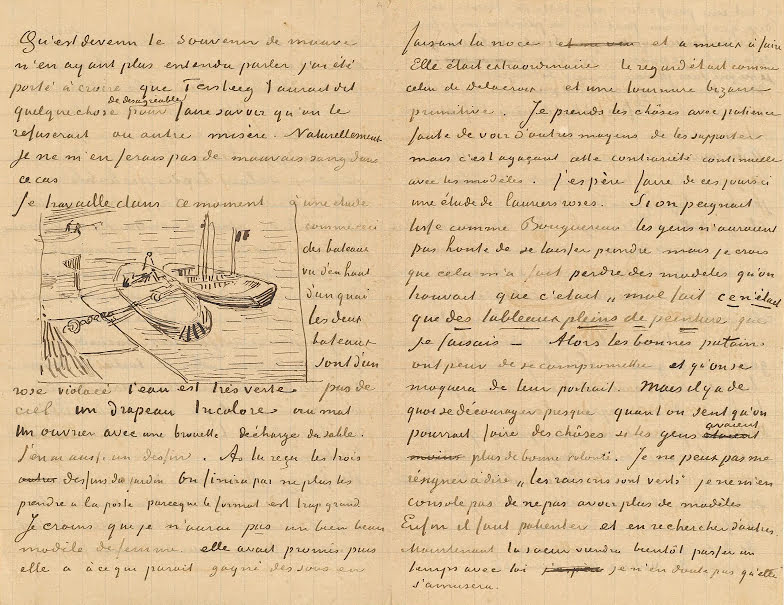 Qu'est devenu le souvenir de mauve
n'en ayant plus entendu parler j'ai été
porté à croire que Tersteeg t'aurait dit
quelquechose de désagréable pour faire savoir qu'on le
refuserait ou autre misère. Naturellement
je ne m'en ferais pas de mauvais sang dans
ce cas
Je travaille dans ce moment à une étude
comme ceci
des bateaux
vu d'en haut
d'un quai
les deux
bateaux
sont d'un
rose violacé l'eau est très verte pas de
ciel un drapeau tricolore au mat
Un ouvrier avec une brouette décharge du sable.
J'en ai aussi un dessin. As tu reçu les trois
autres dessins du jardin On finira par ne plus les
prendre a la poste parceque le format est trop grand
Je crains que je n'aurai pas un bien beau
modèle de femme. elle avait promis puis
elle a à ce qui parait gagné des sous en
faisant la noce et a mieux à faire
Elle était extraordinaire le regard était comme
celui de Delacroix et une tournure bizarre
primitive. Je prends les chôses avec patience
faute de voir d'autres moyens de les supporter
mais c'est agaçant cette contrariété continuelle
avec les modèles. J'espère faire de ces jours ci
une étude de lauriers roses. Si on peignait
lisse comme Bouguereau les gens n'auraient
pas honte de se laisser peindre mais je crois
que cela m'a fait perdre des modeles qu'on
trouvait que c'était „mal fait ce n'était
que des tableaux pleins de peinture que
je faisais – Alors les bonnes putains
ont peur de se compromettre et qu'on se
moquera de leur portrait. Mais il y a de
quoi se décourager presque quant on sent qu'on
pourrait faire des chôses si les gens avaient
moins plus de bonne volonté. Je ne peux pas me
résigner à dire „les raisins sont verts" je ne m'en
console pas de ne pas avoir plus de modèles
Enfin il faut patienter et en rechercher d'autres.
Maintenant la soeur viendra bientôt passer un
temps avec toi j'espère je n'en doute pas qu'elle
s'amusera.